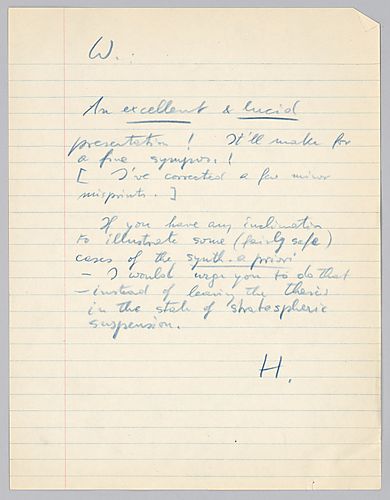 W.:
An excellent & lucid
presentation! It'll make for
a fine sympos.!
[ I've corrected a few minor
misprints. ]
If you have any inclination
to illustrate some (fairly safe)
cases of the synth. a priori
– I would urge you to do that
– instead of leaving the thesis
in the state of stratospheric
suspension.
H.